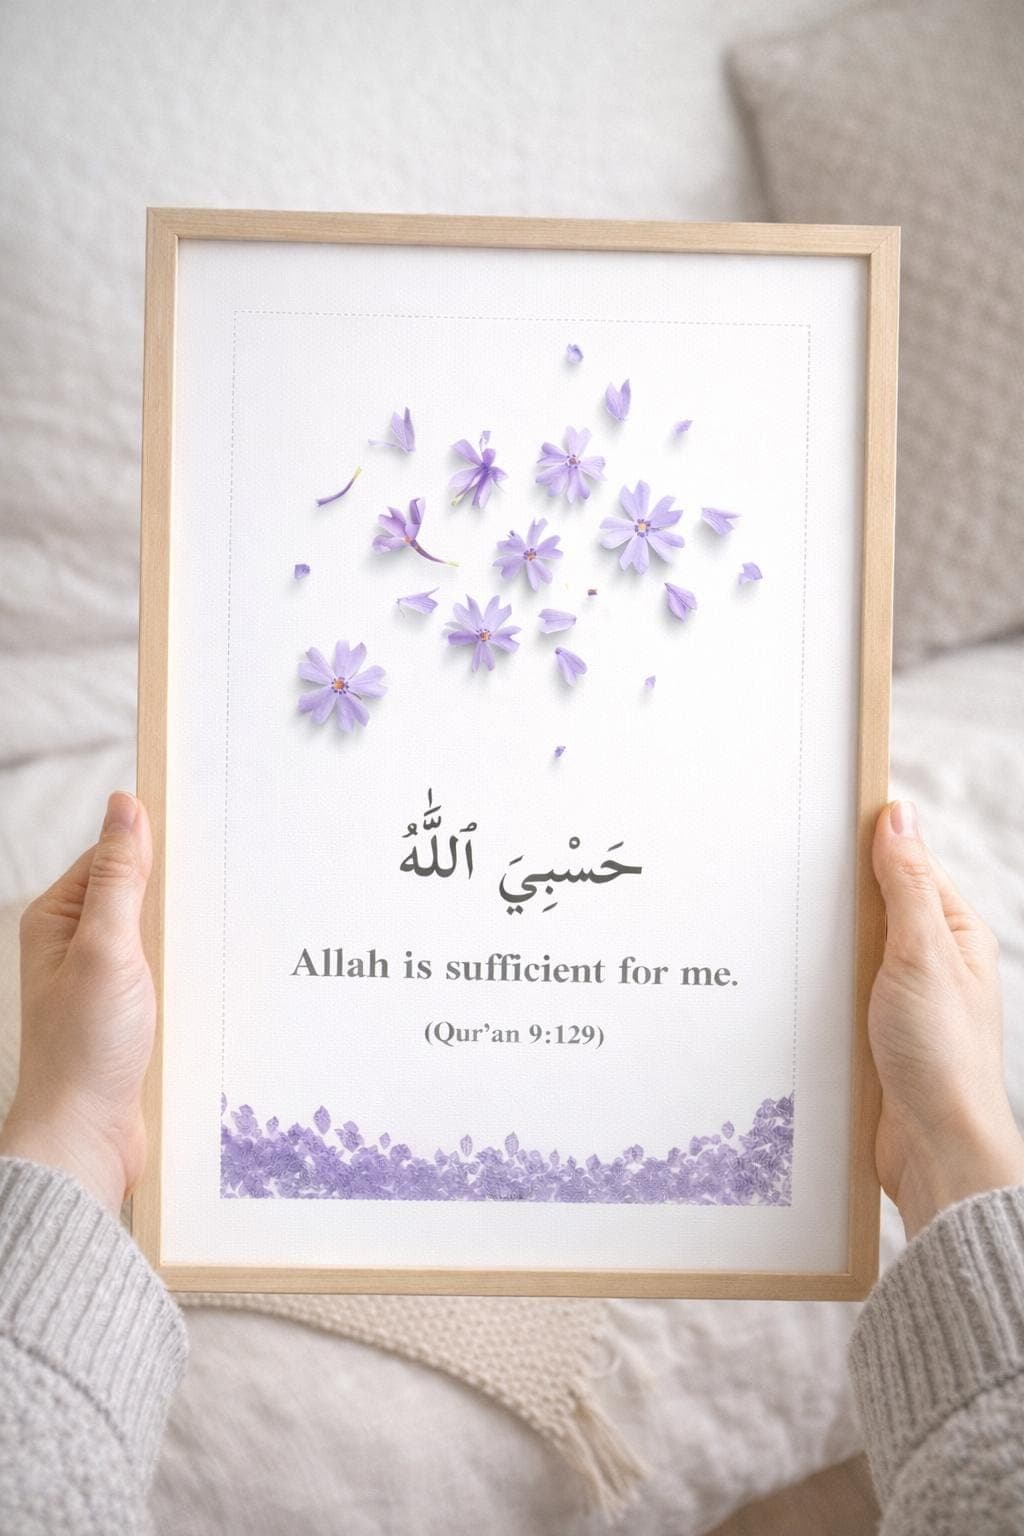 حَسْبِيَ ٱللَّهُ
Allah is sufficient for me.
(Qur’an 9:129)